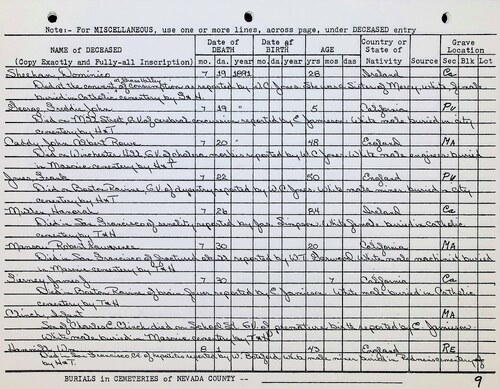 Note:- For MISCELLANEOUS, use one or more lines, across page, under DECEASED entry
NAME of DECEASED (Copy Exactly and Fully-all Inscription) Date of DEATH mo. da. year Date of BIRTH mo. da. year AGE yrs mo das Country or State of Nativity Source Grave Location Sec Blk Lot
Sheehan, Dominico 7 19 1891 28 Ireland Ca
Died at the convent of consumption as reported by W.C. Jones. Sister of Mercy. White female
buried in Catholic cemetery by T&H
George, Freddie John 7 19 " 5 California Pu
Died on Mill Street, G.V. of concussion reported by C. Jamieson. White male buried in city
cemetery by H&T
Caddy, John Albert Rowe 7 20 " 48 England MA
Died on Winchester Hill G.V. of cholera morbus reported by W.C. Jones. White male engineer buried
in Masonic cemetery by H&T
Jones, Frank 7 22 50 England Pu
Died on Boston Ravine, G.V. of dysentery reported by W.C. Jones. White male miner buried in city
cemetery by H&T
Miller, Hanorah 7 26 84 Ireland Ca
Died in San Francisco of senility reported by Jas. Simpson. White female buried in Catholic
cemetery by T&H
Manson, Robert Lawrence 7 30 20 California MA
Died in San Francisco of fractured skull reported by W.T. White male machinist buried
in Masonic cemetery by T&H
Tierney, James J 7 30 7 California Ca
Died in Boston Ravine of fever reported by C. Jamieson. White male buried in Catholic
cemetery by T&H
Clinch, Infant MA
Son of Charles C. Clinch died on School St. G.V. of premature birth reported by C. Jamieson
White male buried in Masonic cemetery by T&H
8 1 43 England RE
Died in San Francisco, Cal of reported by W. White male miner buried in cemetery
BURIALS in CEMETERIES of NEVADA COUNTY
9